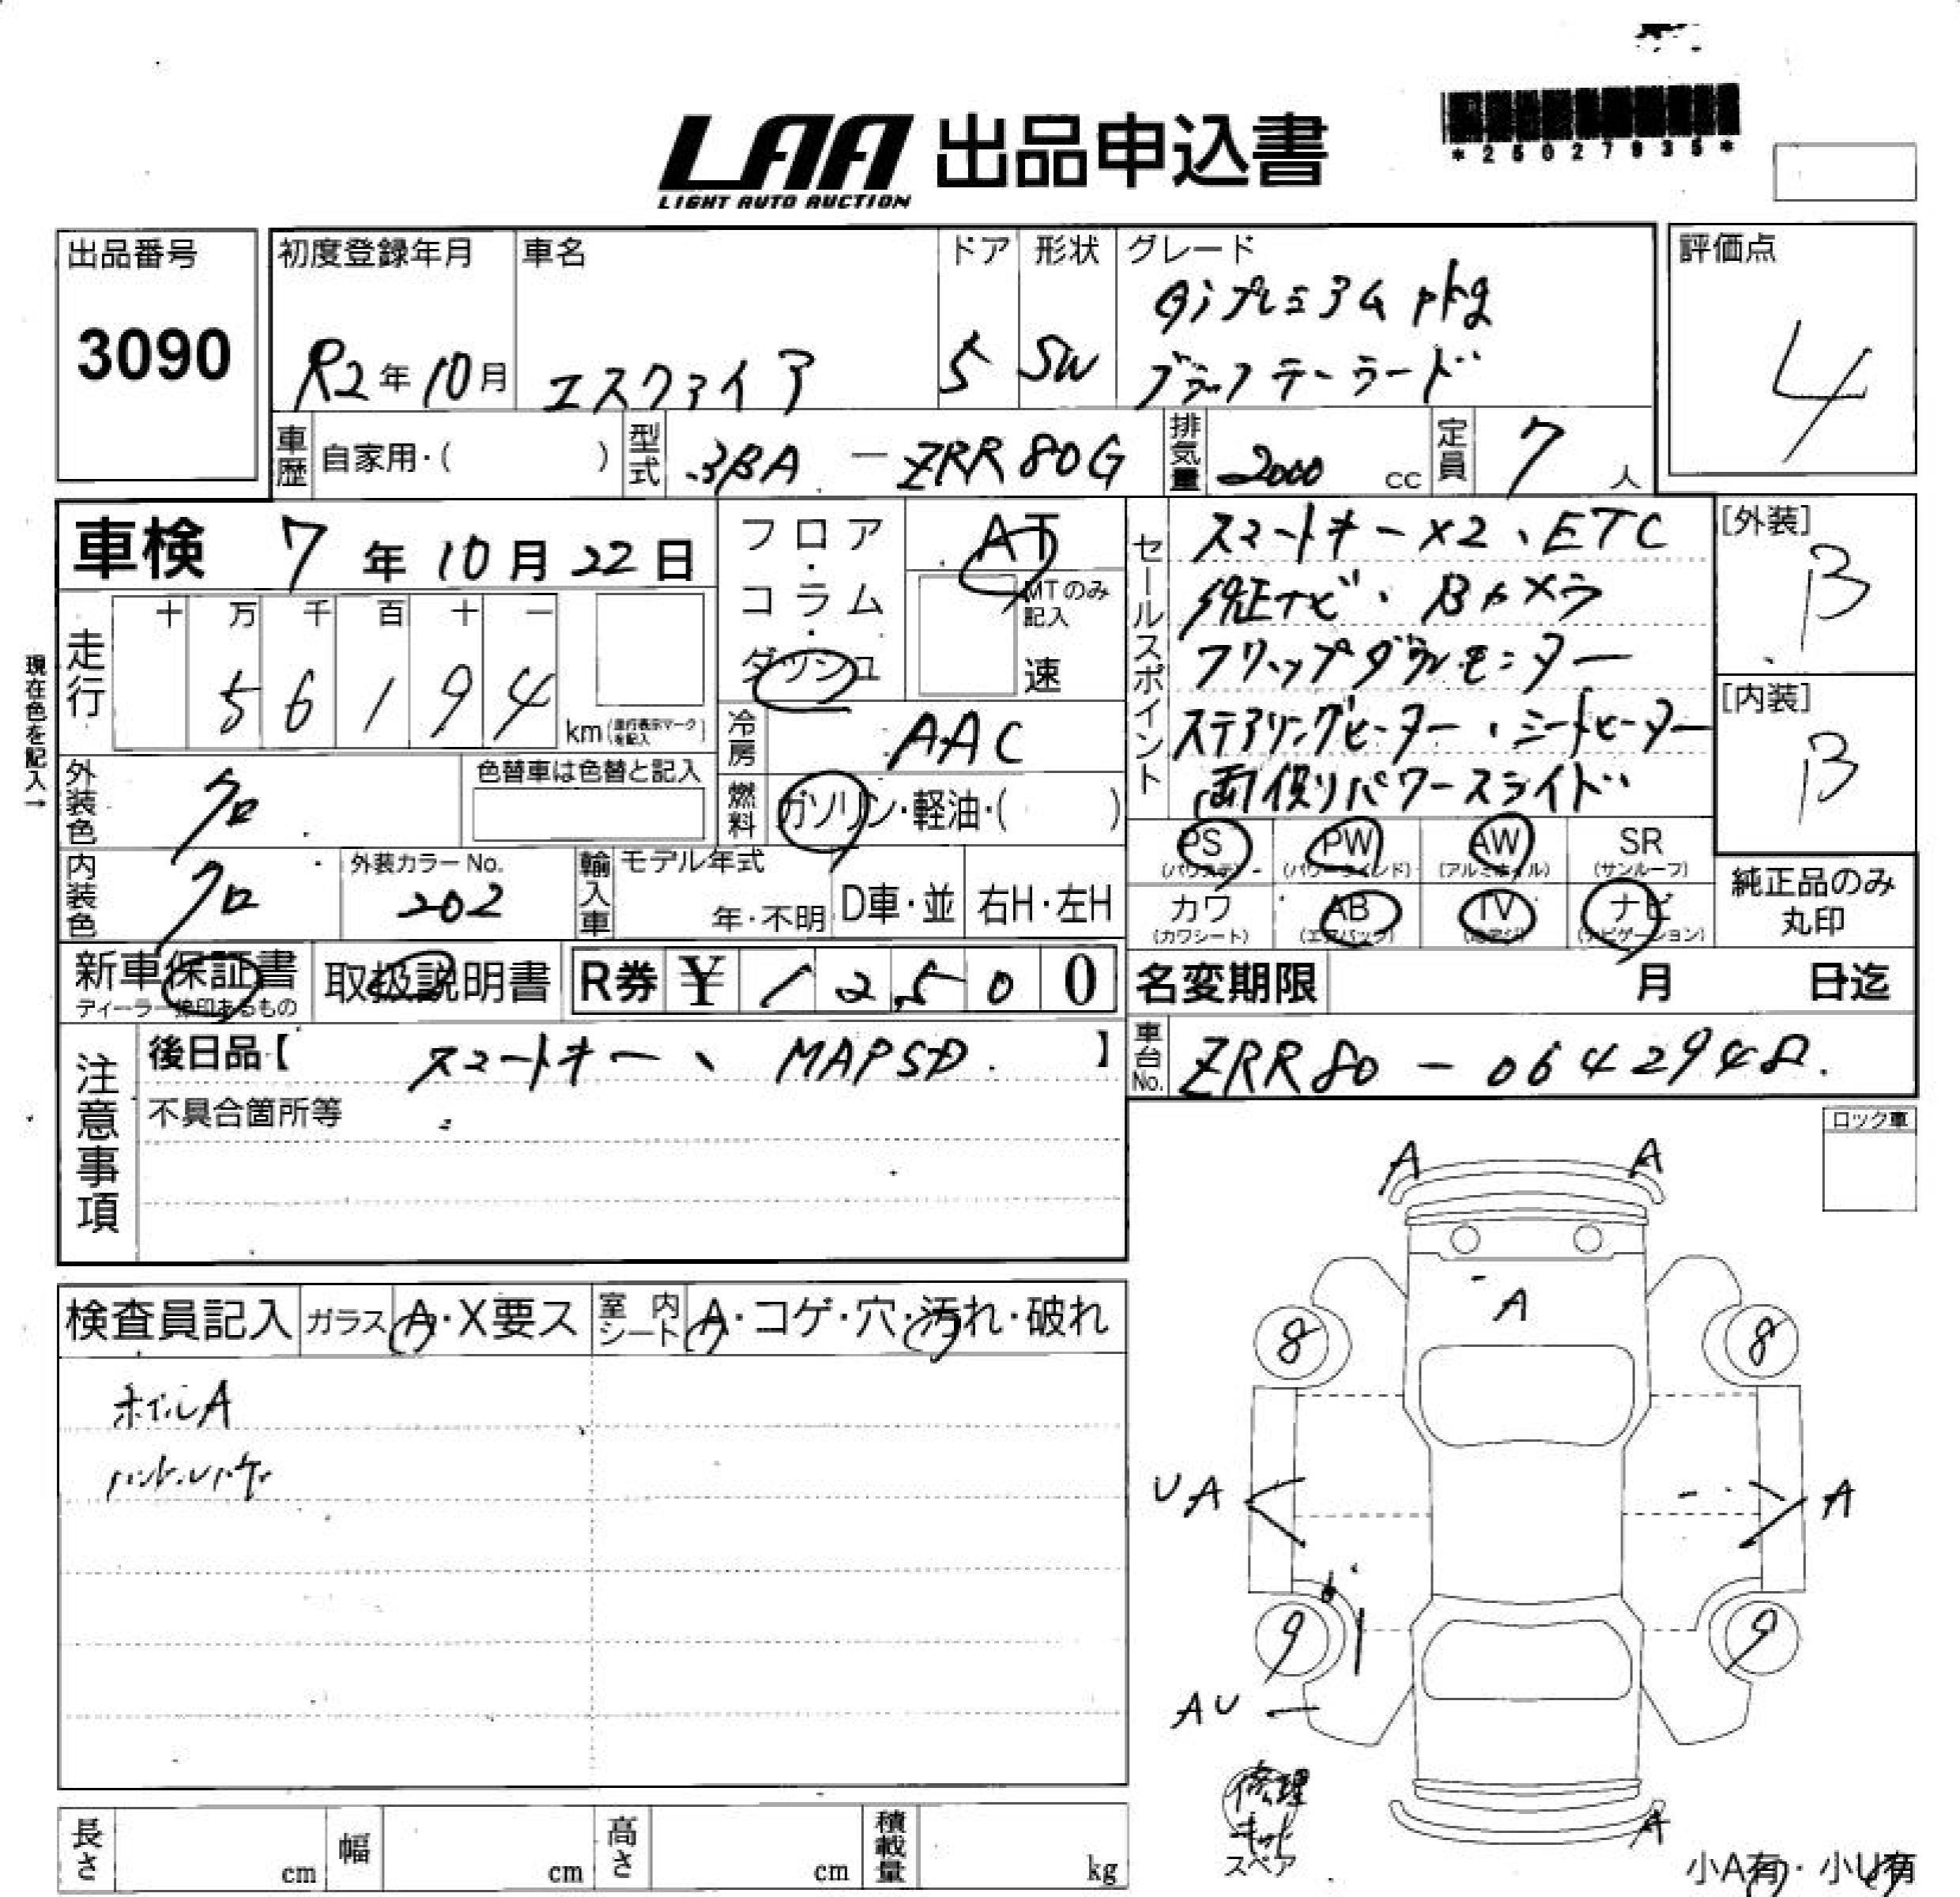 LAA 出品申込書
LIGHT AUTO AUCTION
*25027935*
出品番号
3090
初度登録年月
R2年10月
車名
エスクァイア
ドア
5
形状
SW
グレード
Giプレミアムpkg
ブラックテーラード
評価点
4
車歴 自家用・( )
型式 3BA - ZRR80G
排気量 2000 cc
定員 7人
車検 7年10月22日
現在色を記入→
走行 十万千百十一
56194 km (走行表示マークを記入)
フロア・コラム・ダッシュ
AT
MTのみ記入
速
冷房 AAC
燃料 ガソリン・軽油・( )
外装色 クロ
色替車は色替と記入
内装色 クロ
外装カラーNo. 202
輸入車 モデル年式 年・不明 D車・並 右H・左H
セールスポイント
スマートキー×2、ETC
純正ナビ、Bカメラ
フリップダウンモニター
ステアリングヒーター、シートヒーター
両側パワースライド
[外装] B
[内装] B
PS (パワステ) PW (パワーウインド) AW (アルミホイル) SR (サンルーフ)
カワ (カワシート) AB (エアバック) TV (地デジ) ナビ (ナビゲーション)
純正品のみ丸印
新車保証書
ディーラー捺印あるもの
取扱説明書
R券 ¥12500
名変期限 月 日迄
車台No. ZRR80 - 0642948
注意事項
後日品【スマートキー、MAPSD.】
不具合箇所等
ロック車
検査員記入 ガラス A・X要ス 室内シート A・コゲ・穴・汚れ・破れ
ホイルA
A A
A
8 8
UA A
9 9
AU
A
修理キット
スペア
小A有・小U有
長さ cm 幅 cm 高さ cm 積載量 kg